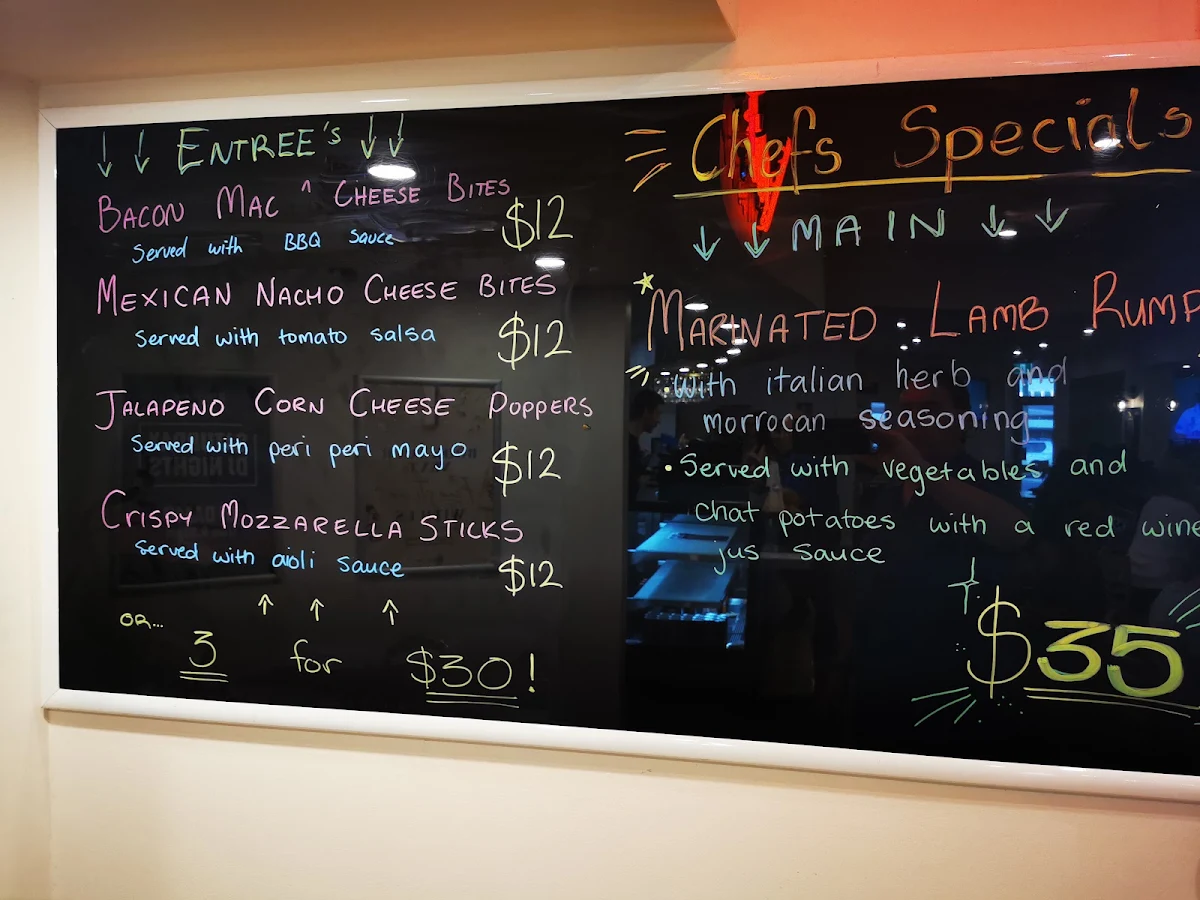 ↓ ↓ ENTREE's ↓ ↓
BACON MAC ^ CHEESE BITES
Served with BBQ Sauce
$12
MEXICAN NACHO CHEESE BITES
Served with tomato salsa
$12
JALAPENO CORN CHEESE POPPERS
Served with peri peri mayo
$12
CRISPY MOZZARELLA STICKS
Served with aioli sauce
$12
↑ ↑ ↑
OR...
3 for $30!
Chefs Specials
↓ ↓ MAIN ↓ ↓
MARINATED LAMB RUMP
• with italian herb and
morrocan seasoning
• Served with vegetables and
chat potatoes with a red wine
jus sauce
$35